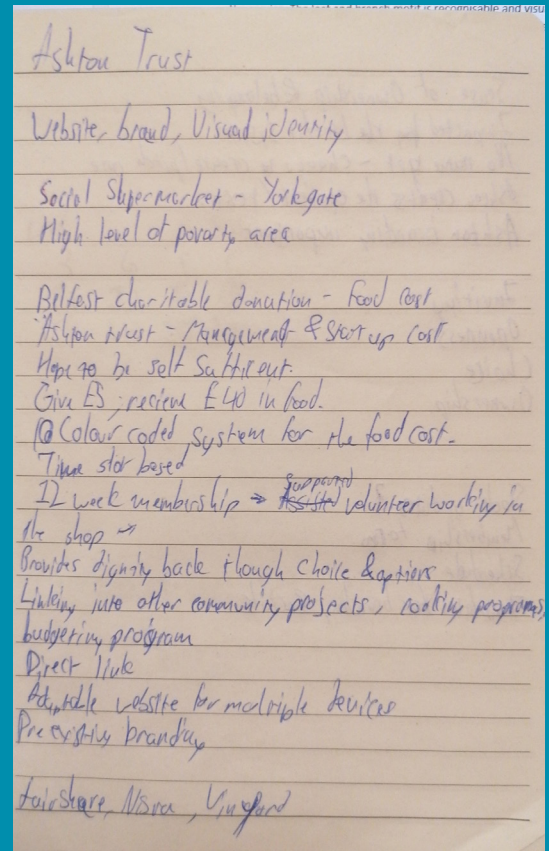 Ashton Trust
Website, brand, Visual identity
Social Supermarket - Yorkgate
High level of povarty area
Belfast charitable donation - Food cost
Ashton trust - Management & Start up cost
Hope to be self sufficent.
Give £5, recieve £40 in food.
Colour coded system for the food cost.
Time slot based
12 week membership → supported volunteer working in
the shop →
Provides dignity back though choice & options
Linking into other community projects, cooking programs,
budgeting program
Direct link
Adaptable website for multiple devices
Pre existing branding
Fairshare, Vineyard